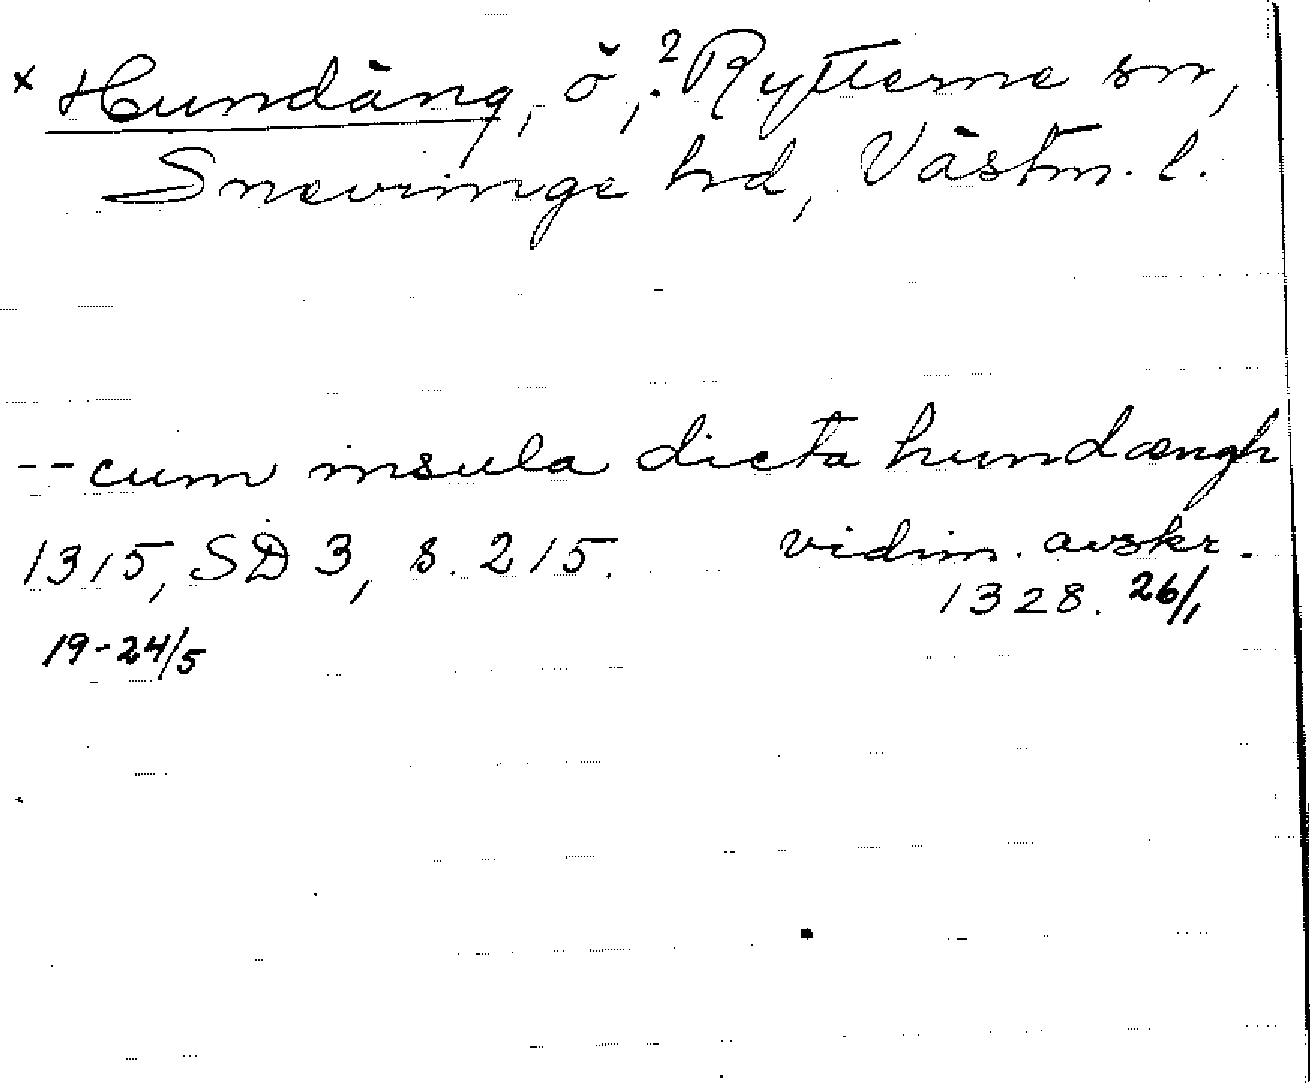 x Hundäng, ö, ? Rytterne sn,
Snevringe hd, Västm. l.
-- cum insula dicta hundængh
1315, SD 3, s. 215. vidim. avskr.
1328. 26/1
19-24/5